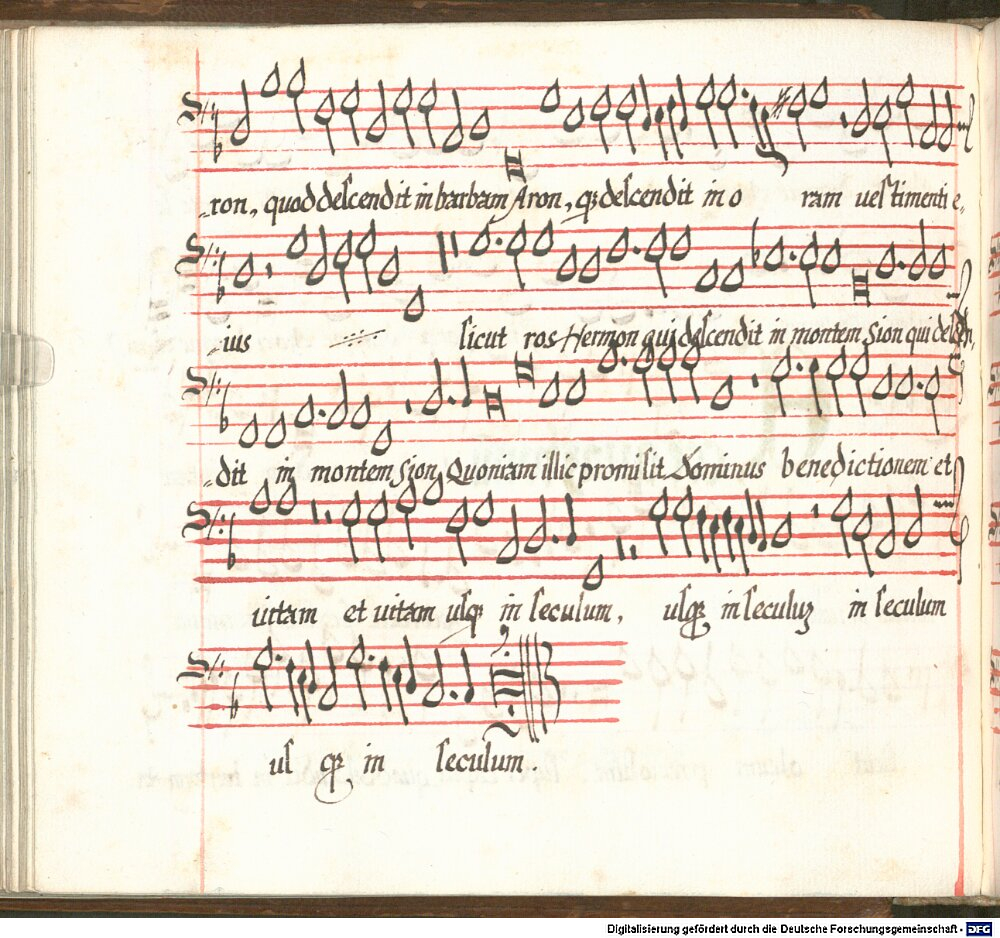 ron, quod descendit in barbam Aron, qꝫ descendit in o ram uestimenti e,
ius sicut ros Hermon qui descendit in montem Sion qui descen,
dit in montem Sion Quoniam illic promisit Dominus benedictionem et
uitam et uitam usqꝫ in seculum, usqꝫ in seculuꝫ in seculum
us qꝫ in seculum.
Digitalisierung gefördert durch die Deutsche Forschungsgemeinschaft - DFG